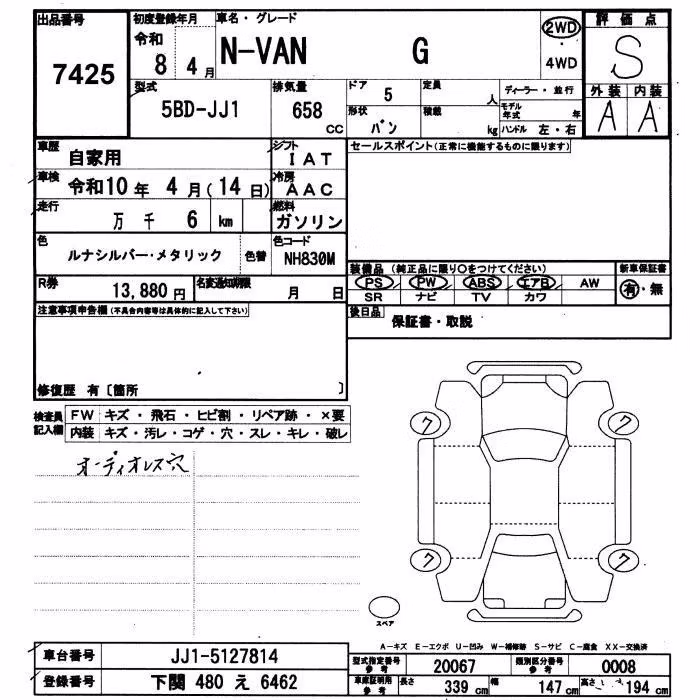 出品番号 初度登録年月 車名・グレード 評価点
7425 令和 8 4月 N-VAN G 2WD・4WD S
型式 排気量 ドア 定員 ディーラー・並行 外装 内装
5BD-JJ1 658 cc 5 人 モデル年式 年 A A
形状 バン 積載 kg ハンドル 左・右
車歴 自家用 シフト IAT セールスポイント(正常に機能するものに限ります)
車検 令和10年 4月(14日) 冷房 AAC
走行 万 千 6 km 燃料 ガソリン
色 ルナシルバー・メタリック 色替 色コード NH830M
装備品 (純正品に限り○をつけてください) 新車保証書
R券 13,880円 名変通知期限 月 日 PS PW ABS エアB AW 有・無
SR ナビ TV カワ
注意事項申告欄(不具合内容等は具体的に記入して下さい) 後日品 保証書・取説
修復歴 有〔箇所 〕
検査員記入欄 FW キズ・飛石・ヒビ割・リペア跡・×要
内装 キズ・汚レ・コゲ・穴・スレ・キレ・破レ
オーディオレス穴
ク ク
ク ク
スペア
A-キズ E-エクボ U-凹み W-補修跡 S-サビ C-腐食 XX-交換済
車台番号 JJ1-5127814 型式指定番号 参考 20067 類別区分番号 参考 0008
登録番号 下関 480 え 6462 車庫証明用 参考 長さ 339 cm 幅 147 cm 高さ 194 cm